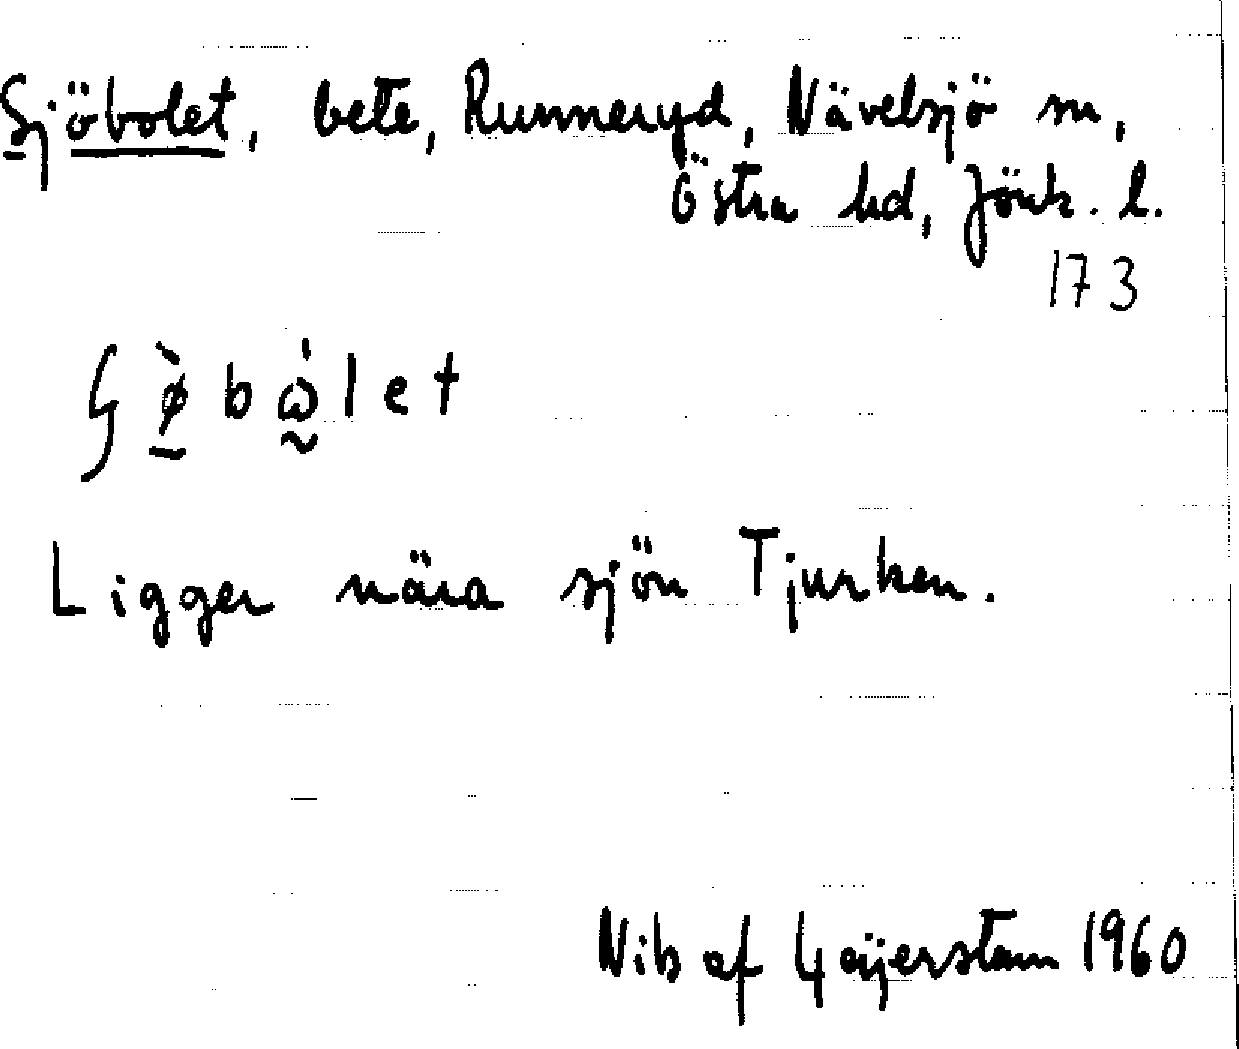 Sjöbolet, bete, Runneryd, Nävelsjö sn,
Östra hd, Jönk. l.
173
Ligger nära sjön Tjurken.
Nils af Geijerstam 1960